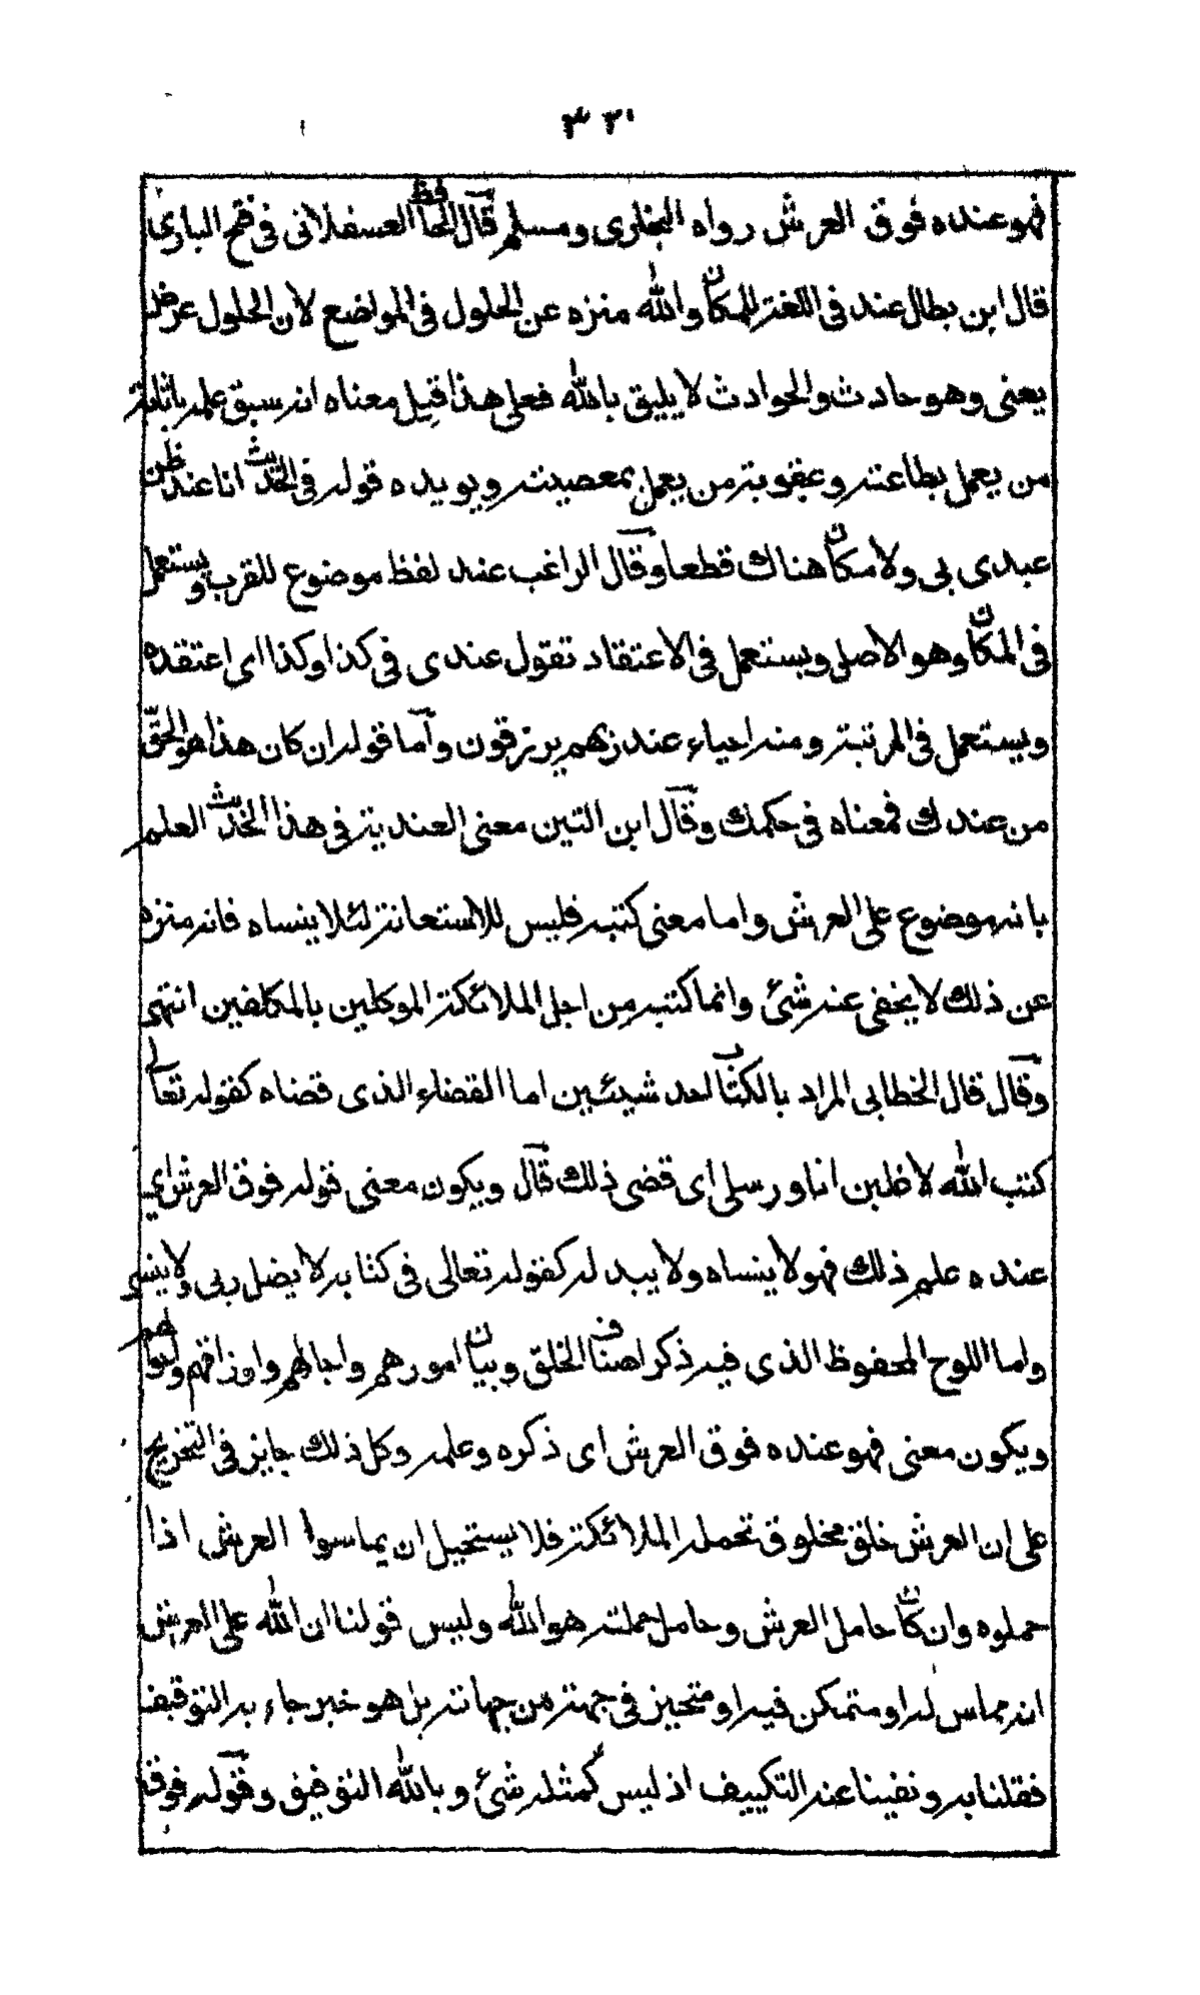 ٣٢١
فهو عنده فوق العرش رواه البخارى ومسلم قال الحافظ العسقلانى فى فتح البارى
قال ابن بطال عند فى اللغة للمكان والله منزه عن الحلول فى المواضع لان الحلول عرض
يعنى وهو حادث والحوادث لا يليق بالله فعلى هذا قيل معناه انه سبق علمه باثابة
من يعمل بطاعته وعقوبة من يعمل بمعصيته ويويده قوله فى الحديث انا عند ظن
عبدى بى ولا مكان هناك قطعا وقال الراغب عند لفظ موضوع للقرب ويستعمل
فى المكان وهو الاصل ويستعمل فى الاعتقاد تقول عندى فى كذا وكذا اى اعتقده
ويستعمل فى المرتبة ومنه احياء عند ربهم يرزقون وأما قوله ان كان هذا هو الحق
من عندك فمعناه فى حكمك وقال ابن التين معنى العندية فى هذا الحديث العلم
بانه موضوع على العرش واما معنى كتبه فليس للاستعانة لئلا ينساه فانه منزه
عن ذلك لا يخفى عنه شئ وانما كتبه من اجل الملائكة الموكلين بالمكلفين انتهى
وقال قال الخطابى المراد بالكتاب احد شيئين اما القضاء الذى قضاه كقوله تعالى
كتب الله لاغلبن انا ورسلى اى قضى ذلك قال ويكون معنى قوله فوق العرش اى
عنده علم ذلك فهو لا ينساه ولا يبدله كقوله تعالى فى كتاب لا يضل ربى ولا ينسى
واما اللوح المحفوظ الذى فيه ذكر اصناف الخلق وبيان امورهم واجالهم وارزاقهم واحوالهم
ويكون معنى فهو عنده فوق العرش اى ذكره وعلمه وكل ذلك جايز فى التخريج
على ان العرش خلق مخلوق تحمله الملائكة فلا يستحيل ان يماسوا العرش اذا
حملوه وان كان حامل العرش وحامل حملته هو الله وليس قولنا ان الله على العرش
انه مماس له او متمكن فيه او متحيز فى جهة من جهاته بل هو خبر جاء به التوقيف
فقلنا به ونفينا عنه التكييف اذ ليس كمثله شئ وبالله التوفيق وقوله فوق